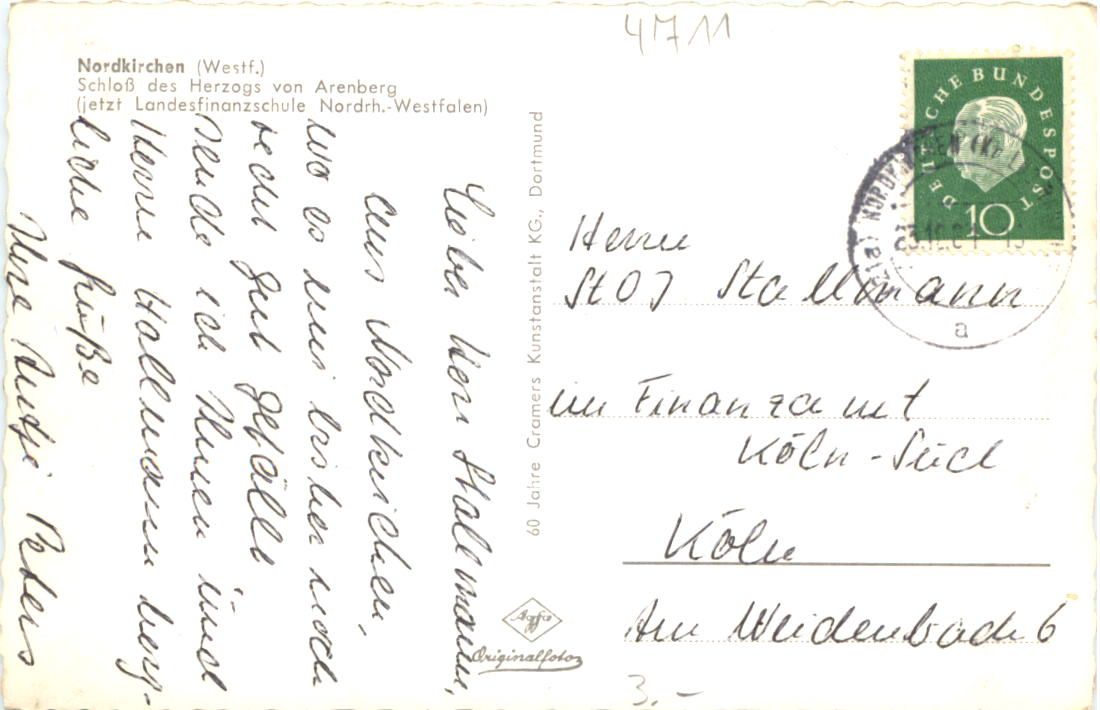 4711
Nordkirchen (Westf.)
Schloß des Herzogs von Arenberg
(jetzt Landesfinanzschule Nordrh.-Westfalen)
Lieber Herr Stallmann,
aus Nordkirchen,
wo es mir bisher noch
recht gut gefällt
sende ich Ihnen und
Herrn Hallmann herz-
liche Grüße
Ihre Antje Peters
60 Jahre Cramers Kunstanstalt KG., Dortmund
Agfa
Originalfoto
DEUTSCHE BUNDESPOST
10
NORDKIRCHEN
a
Herrn
StOJ Stallmann
im Finanzamt
Köln-Süd
Köln
Am Weidenbach 6
3.-